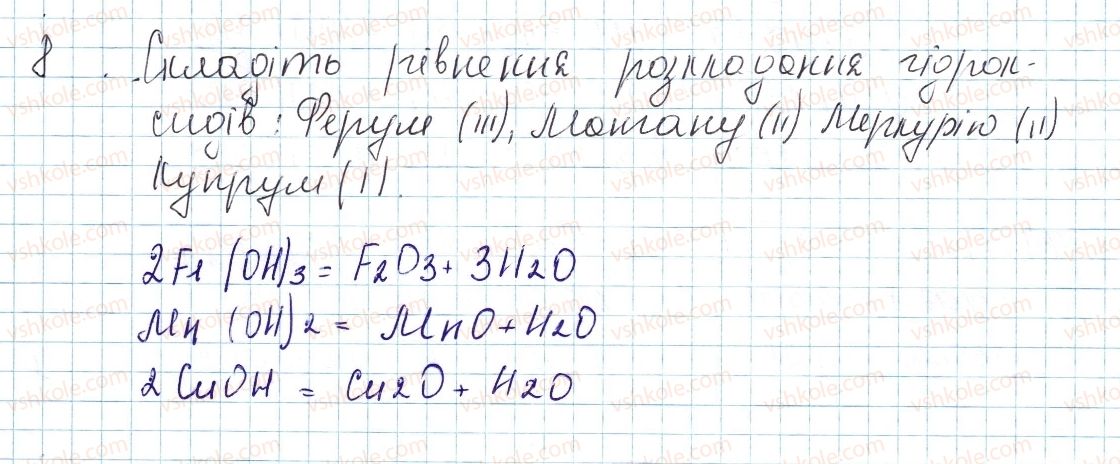 8 . Складіть рівнення розкладання гідрок-
сидів: Ферум (III), Мангану (II) Меркурію (II)
Купрум (I).
2Fe (OH)3 = F2O3 + 3H2O
Mn (OH)2 = MnO + H2O
2CuOH = Cu2O + H2O